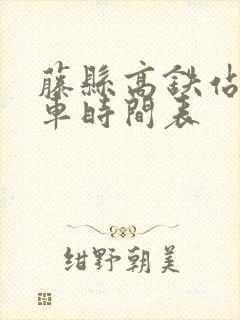 藤縣高鉄佔
車時間表
紺野朝美